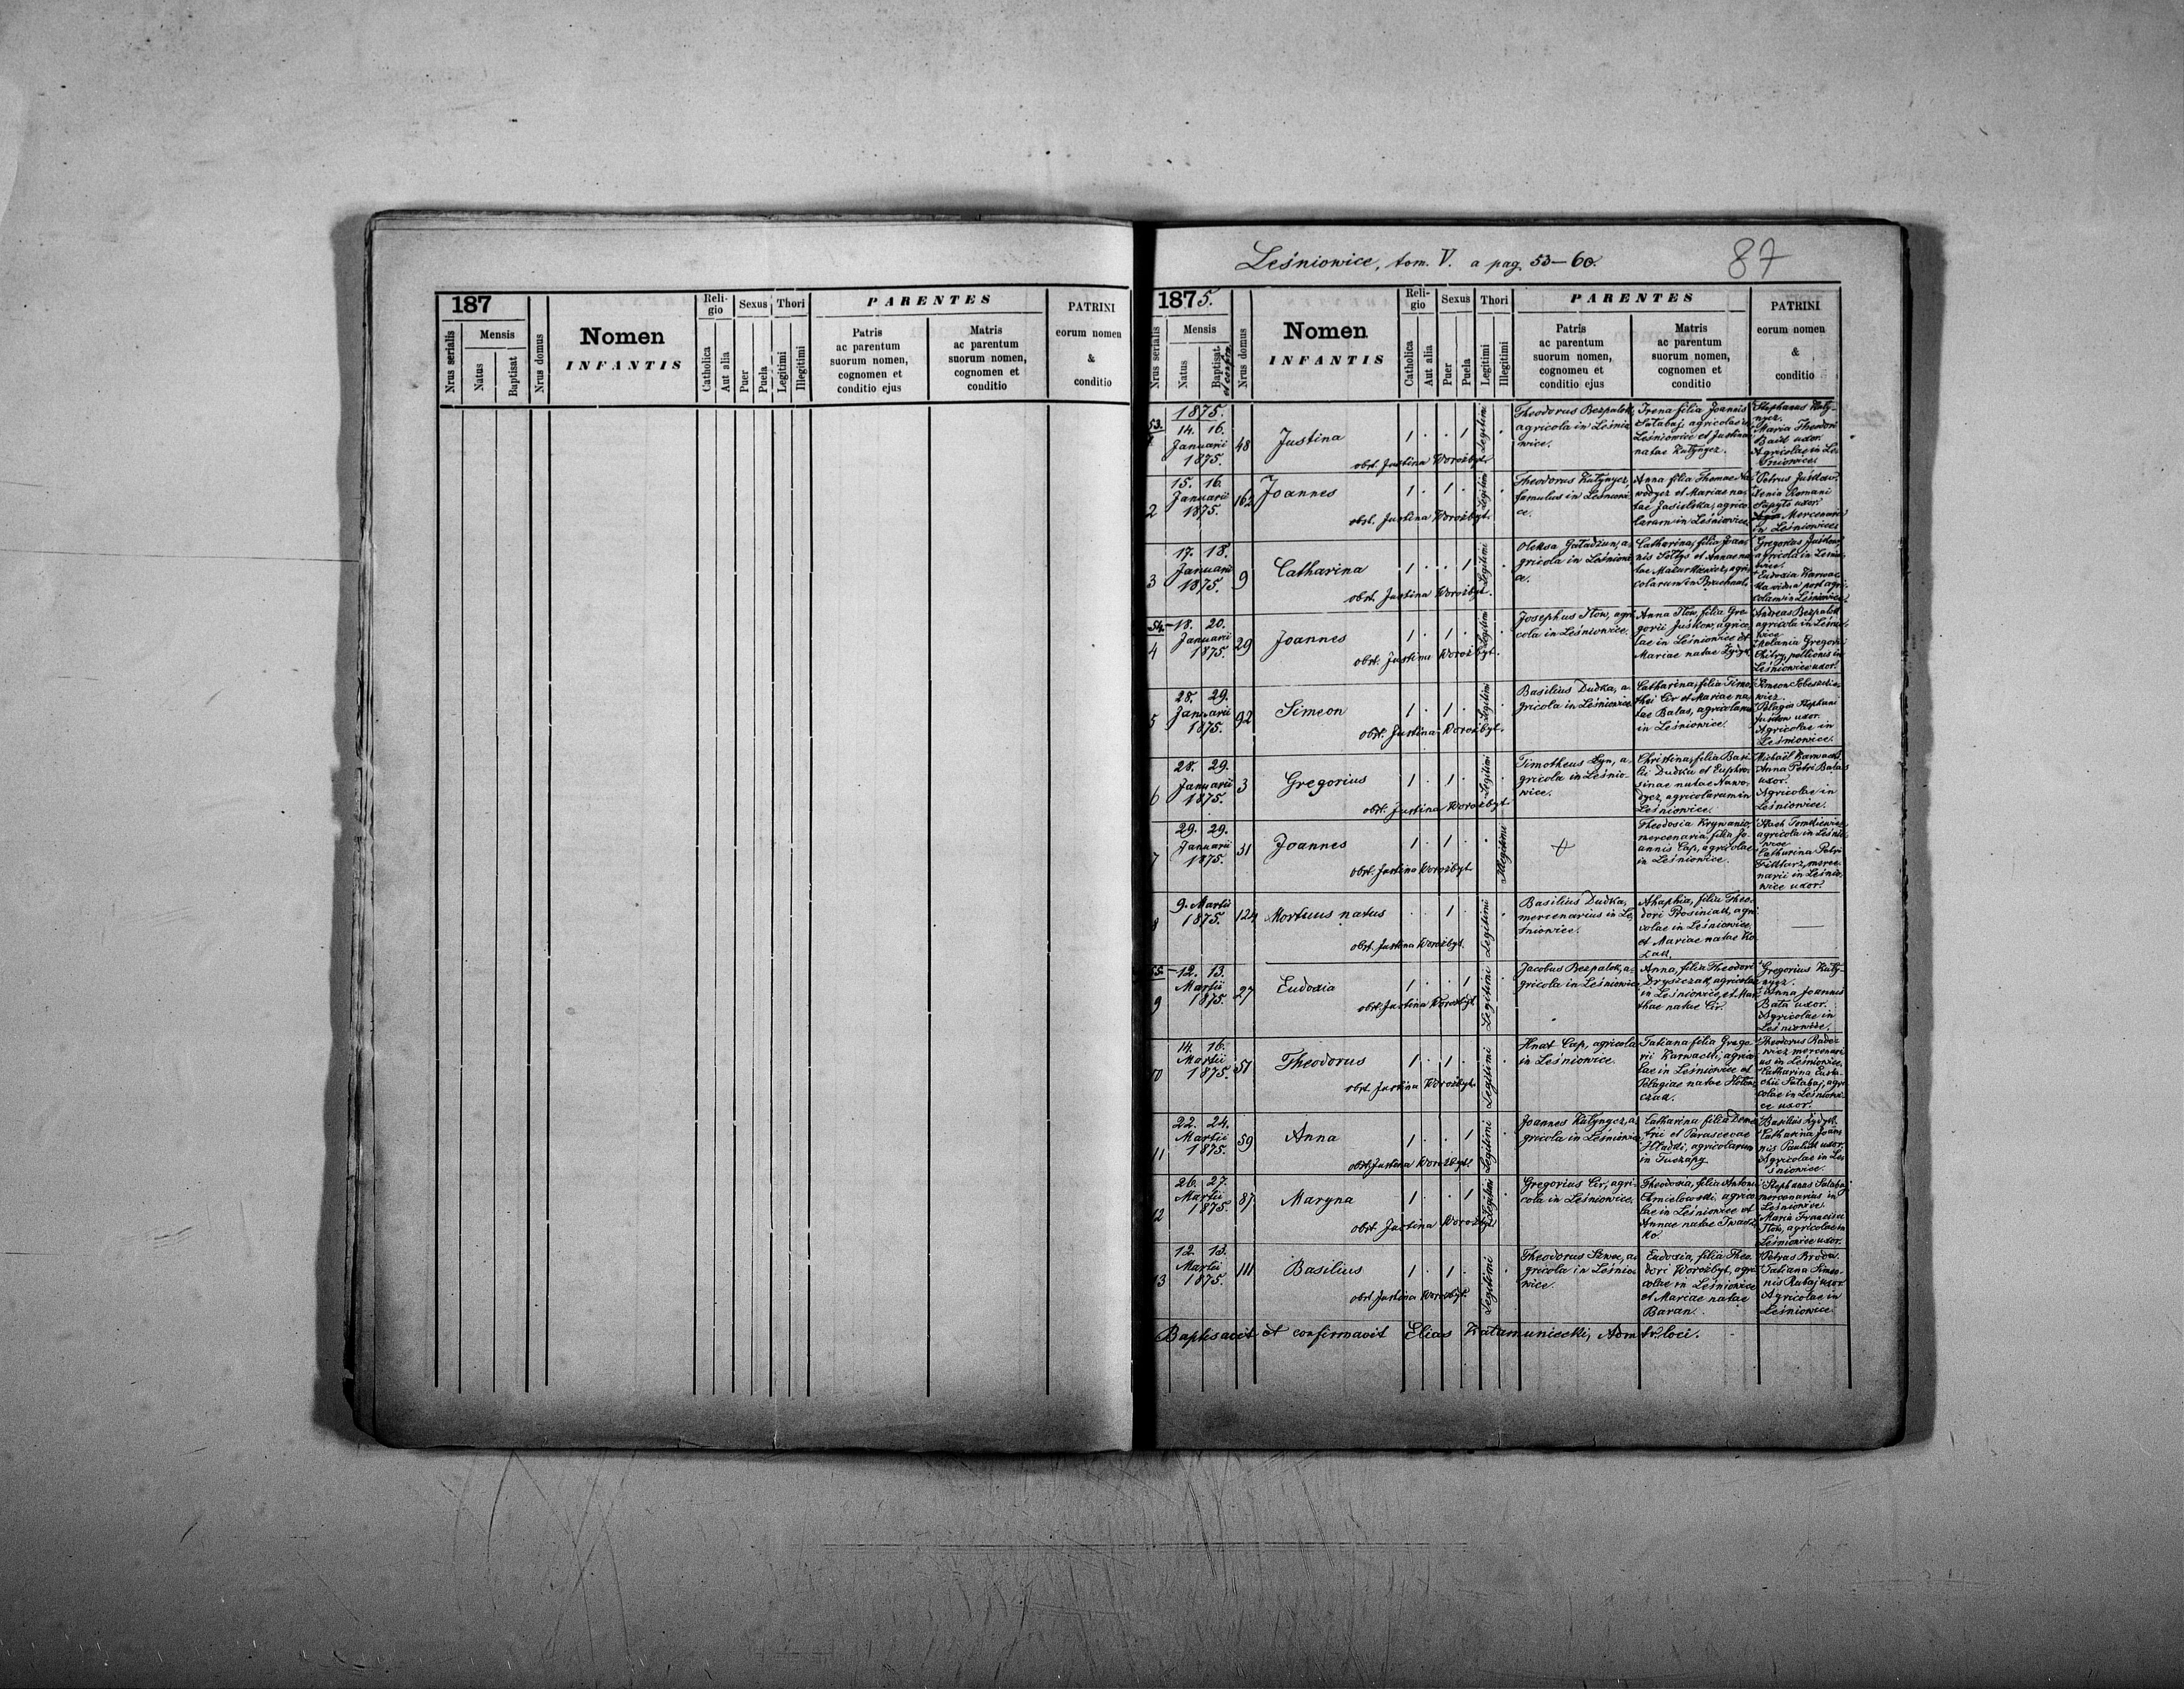 187
Nrus serialis
Mensis
Natus
Baptisat
Nrus domus
Nomen
INFANTIS
Reli-
gio
Catholica
Aut alia
Sexus
Puer
Puela
Thori
Legitimi
Illegitimi
PARENTES
Patris
ac parentum
suorum nomen,
cognomen et
conditio ejus
Matris
ac parentum
suorum nomen,
cognomen et
conditio
PATRINI
eorum nomen
&
conditio
Leśniowice, tom. V. a pag. 53–60.
87
1875.
Nrus serialis
Mensis
Natus
Baptisat.
Nrus domus
Nomen
INFANTIS
Reli-
gio
Catholica
Aut alia
Sexus
Puer
Puela
Thori
Legitimi
Illegitimi
PARENTES
Patris
ac parentum
suorum nomen,
cognomeu et
conditio ejus
Matris
ac parentum
suorum nomen,
cognomen et
conditio
PATRINI
eorum nomen
&
conditio
1875.
53.
14. 16.
Januarii
1875.
48
Justina
1 . . 1
Legitimi
obst. Justina Worożbyt.
Theodorus Bezpalok,
agricola in Leśnio
wice.
Irena filia Joannis
Sałabaj, agricolae in
Leśniowice et Justinae
natae Kułynycz.
Stephanus Kuły-
nycz.
Maria Theodori
uxor.
Agricolae in Le
śniowice.
2
15. 16.
Januarii
1875.
162
Joannes
1 . 1 .
Legitimi
obst. Justina Worożbyt.
Theodorus Kułynycz,
famulus in Leśniowi
ce.
Anna filia Thomae Na
wodycz et Mariae na-
tae Jasielska, agrico
larum in Leśniowice.
Petrus Juśkow.
Xenia Romani
uxor.
Mercenarii
in Leśniowice.
3
17. 18.
Januarii
1875.
9
Catharina
1 . . 1
Legitimi
obst. Justina Worożbyt.
Oleksa Gaładzun, a-
gricola in Leśniowi
ce.
Catharina, filia Joan
nis Sołtys et Annae na
tae agri
colarum in
Gregorius Juśkow,
agricola in Leśnio
wice.
Eudoxia Karwac
ka vidua post agri
colam in Leśniowice.
54.
4
18. 20.
Januarii
1875.
29
Joannes
1 . 1 .
Legitimi
obst. Justina Worożbyt.
Josephus Iłow, agri
cola in Leśniowice.
Anna Iłow, filia Gre
gorii Juśkow, agrico
lae in Leśniowice et
Mariae natae Żydyk.
Andreas Bezpalok
agricola in Leśnio
wice
Melania Gregorii
pellionis in
Leśniowice uxor.
5
28. 29.
Januarii
1875.
92
Simeon
1 . 1 .
Legitimi
obst. Justina Worożbyt.
Basilius Dudka, a-
gricola in Leśniowice.
Catharina, filia Timo
thei Cir et Mariae na
tae Bałas, agricolarum
in Leśniowice.
Simeon
wicz.
Pelagia Stephani
Juśkow uxor.
Agricolae in
Leśniowice.
6
28. 29.
Januarii
1875.
3
Gregorius
1 . 1 .
Legitimi
obst. Justina Worożbyt.
Timotheus Łyn, a-
gricola in Leśnio-
wice.
Christina, filia Basi
lii Dudka et Euphro
sinae natae Nawo-
dycz, agricolarum in
Leśniowice.
Michaël Karwacki.
Anna Petri Bałas
uxor.
Agricolae in
Leśniowice.
7
29. 29.
Januarii
1875.
31
Joannes
1 . 1 . .
Illegitimi
obst. Justina Worożbyt.
Theodosia
mercenaria, filia Jo-
annis Cap, agricolae
in Leśniowice.
Tomkiewicz
agricola in Leśnio
wice
Catharina Petri
merce
narii in Leśnio
wice uxor.
8
9. Martii
1875.
124
Mortuus natus
. . 1 .
Legitimi
obst. Justina Worożbyt.
Basilius Dudka,
mercenarius in Le
śniowice.
Ahaphia, filia Theo
dori Prosiniak, agri
colae in Leśniowice,
et Mariae natae Ko
zak.
55.
9
12. 13.
Martii
1875.
27
Eudoxia
1 . . 1
Legitimi
obst. Justina Worożbyt
Jacobus Bezpalok, a-
gricola in Leśniowice.
Anna, filia Theodori
Dryszczak, agricolae
in Leśniowice, et Mar
thae natae Cir.
Gregorius Kuły-
nycz.
Anna Joannis
Bała uxor.
Agricolae in
Leśniowice.
10
14. 16.
Martii
1875.
51
Theodorus
1 . 1 .
Legitimi
obst. Justina Worożbyt.
Hnat Cap, agricola
in Leśniowice.
Tatiana filia Grego
rii Karwacki, agrico
lae in Leśniowice et
Pelagiae natae
czak.
Theodorus
wicz mercenari
us in Leśniowice.
Catharina Eusta-
chii Sałabaj, agri
colae in Leśniowi
ce uxor.
11
22. 24.
Martii
1875.
59
Anna
1 . . 1
Legitimi
obst. Justina Worożbyt.
Joannes Kułynycz, a
gricola in Leśniowice.
Catharina filia Deme
trii et Parascevae
Hładki, agricolarum
in Tuczapy.
Basilius Żydyk.
Catharina Joan
nis Pauluk uxor.
Agricolae in Le
śniowice.
12
26. 27.
Martii
1875.
87
Maryna
1 . . 1
Legitimi
obst. Justina Worożbyt
Gregorius Cir, agri-
cola in Leśniowice.
Theodosia, filia Antoni
Chmielowski, agrico
lae in Leśniowice et
Annae natae Iwasz
ko.
Stephanus Sałabaj
mercenarius in
Leśniowice.
Maria Francisci
Iłow, agricolae in
Leśniowice uxor.
13
12. 13.
Martii
1875.
111
Basilius
1 . 1 .
Legitimi
obst. Justina Worożbyt.
Theodorus Szwec, a-
gricola in Leśnio
wice.
Eudoxia, filia Theo
dori Worożbyt, agri
colae in Leśniowice
et Mariae natae
Baran.
Petrus Broda.
Tatiana Simeo-
nis Rubaj uxor
Agricolae in
Leśniowice.
Baptisavit et confirmavit Elias Kałamuniecki, Admtr. loci.